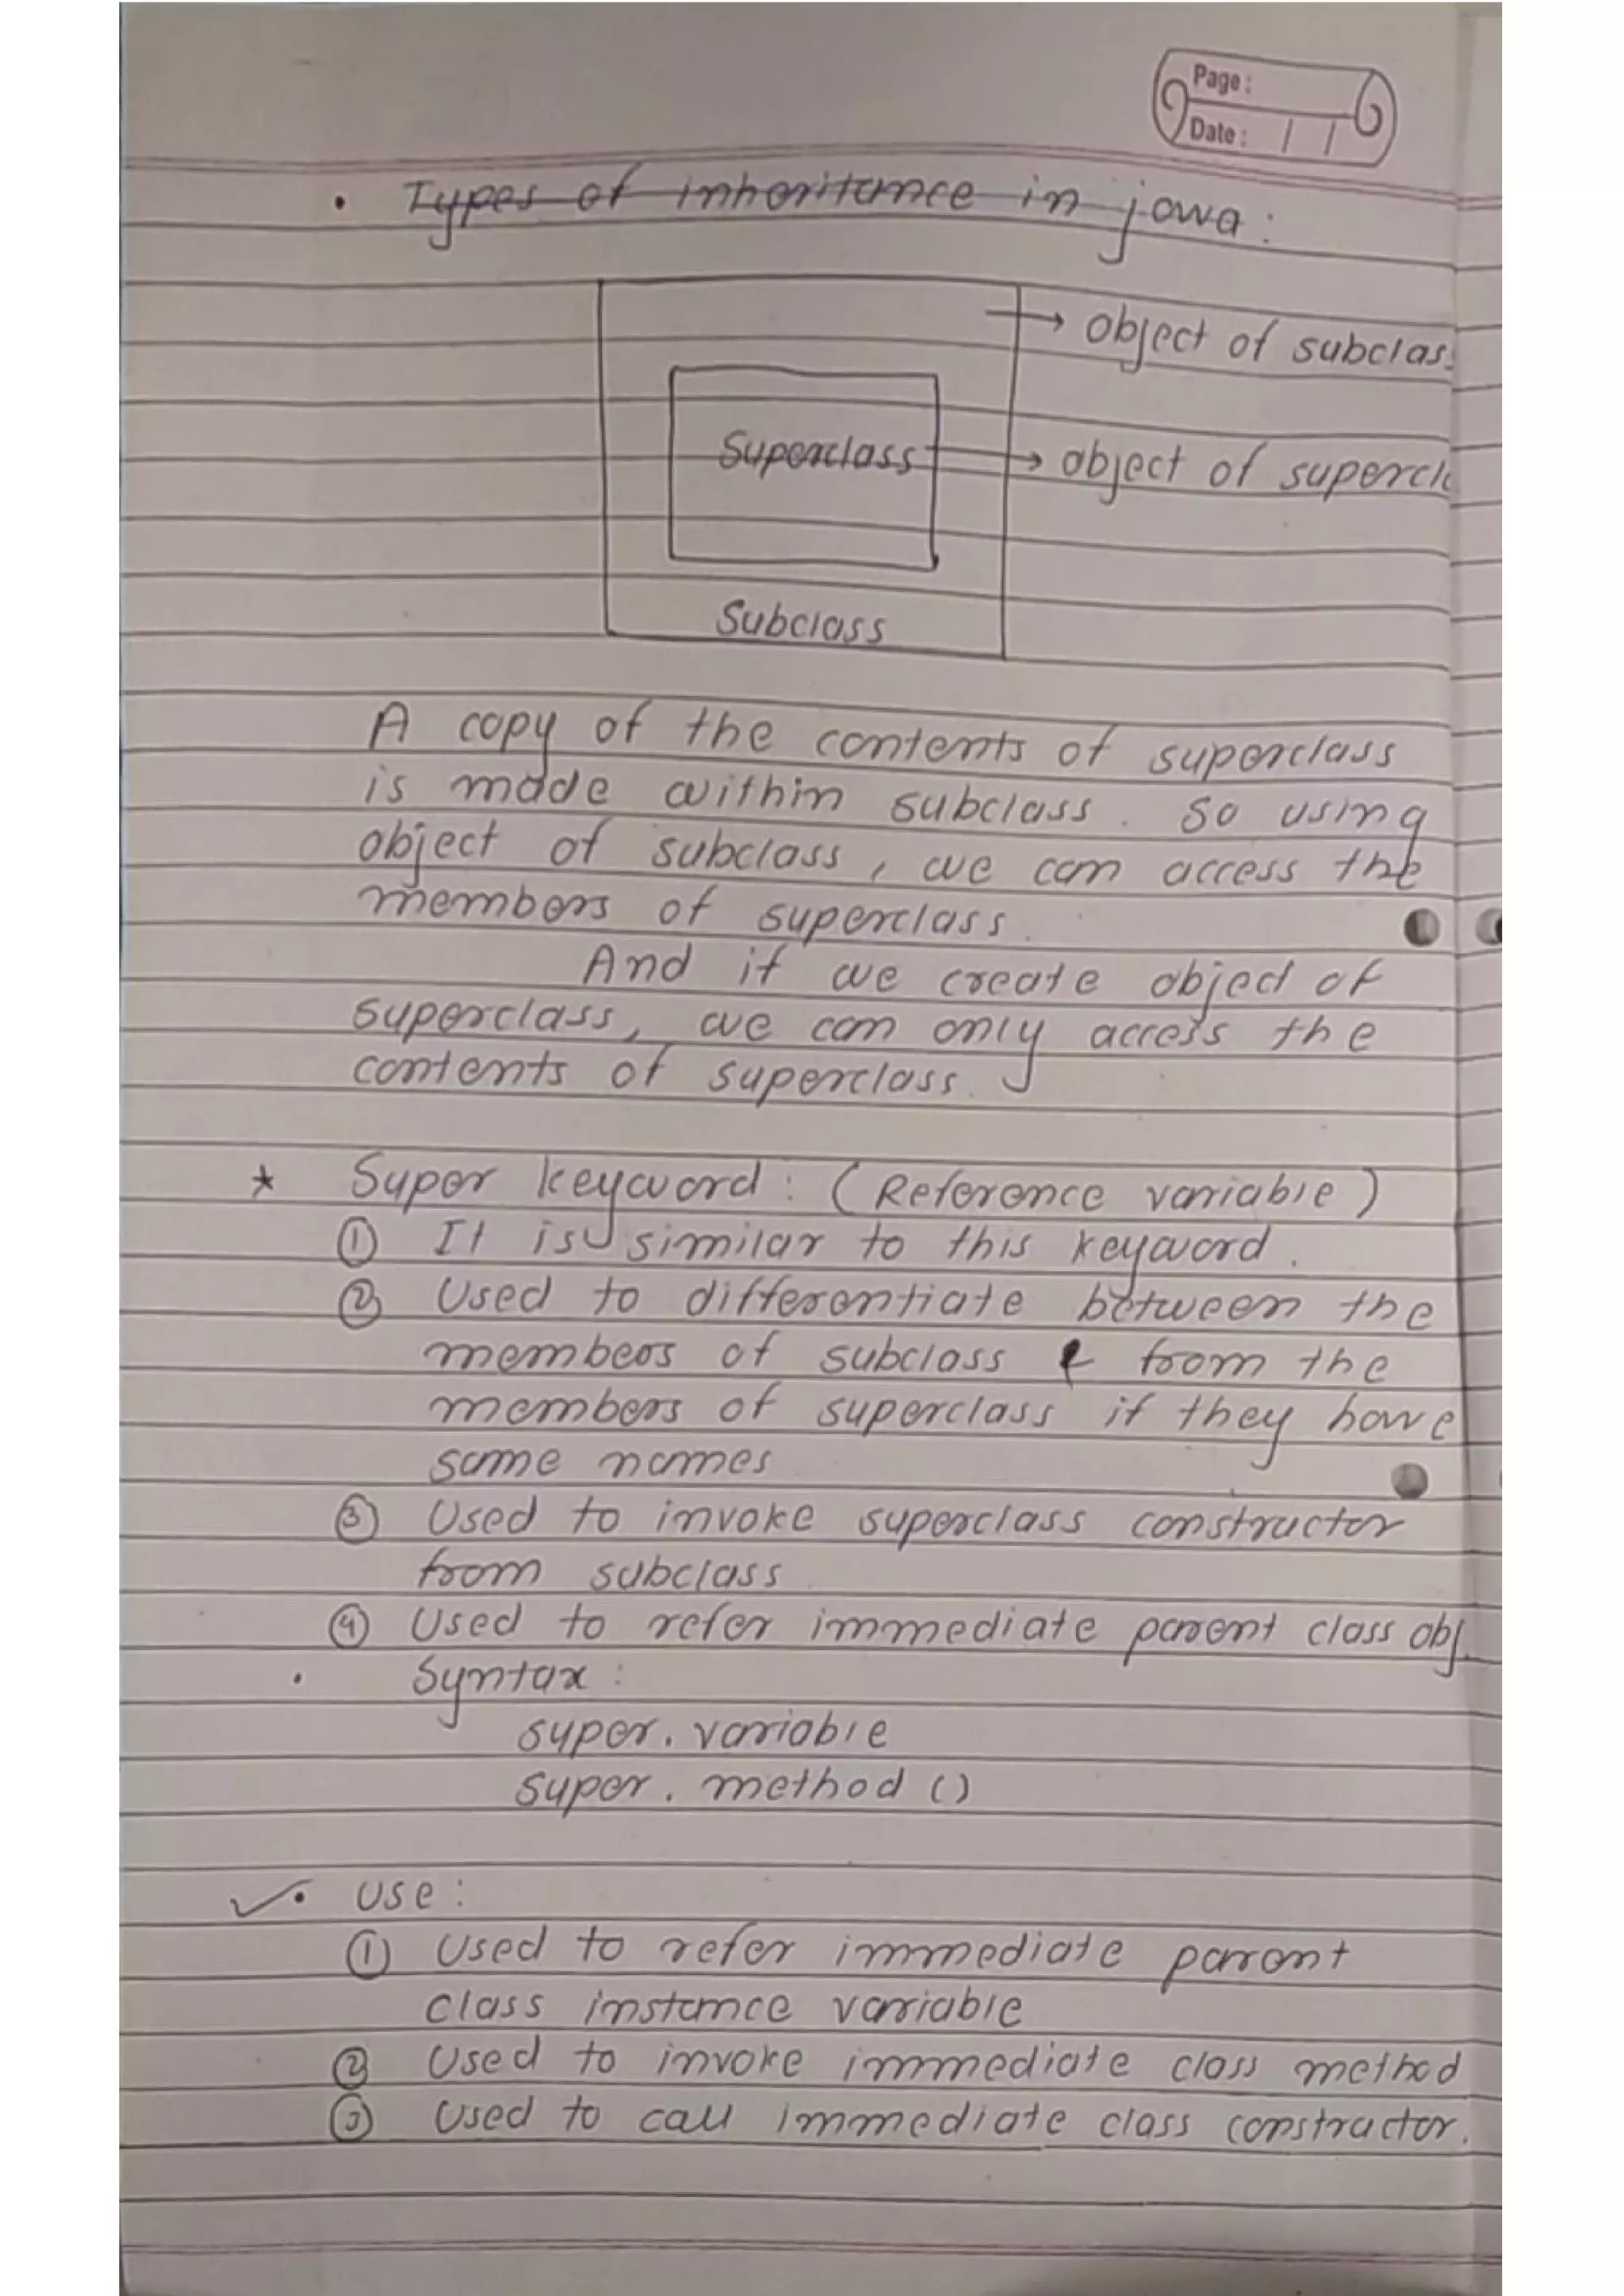 Page:
Date: / /
• Types of inheritance in java:
→ object of subclas
Superclass → object of supercl
Subclass
A copy of the contents of superclass
is made within subclass. So using
object of subclass, we can access the
members of superclass.
And if we create object of
superclass, we can only access the
contents of superclass.
* Super keyword: (Reference variable)
① It is similar to this keyword.
② Used to differentiate between the
members of subclass from the
members of superclass if they have
same names
③ Used to invoke superclass constructor
from subclass
④ Used to refer immediate parent class obj.
• Syntax:
super. variable
super. method ()
✓• Use:
① Used to refer immediate parent
class instance variable
② Used to invoke immediate class method
③ Used to call immediate class constructor.